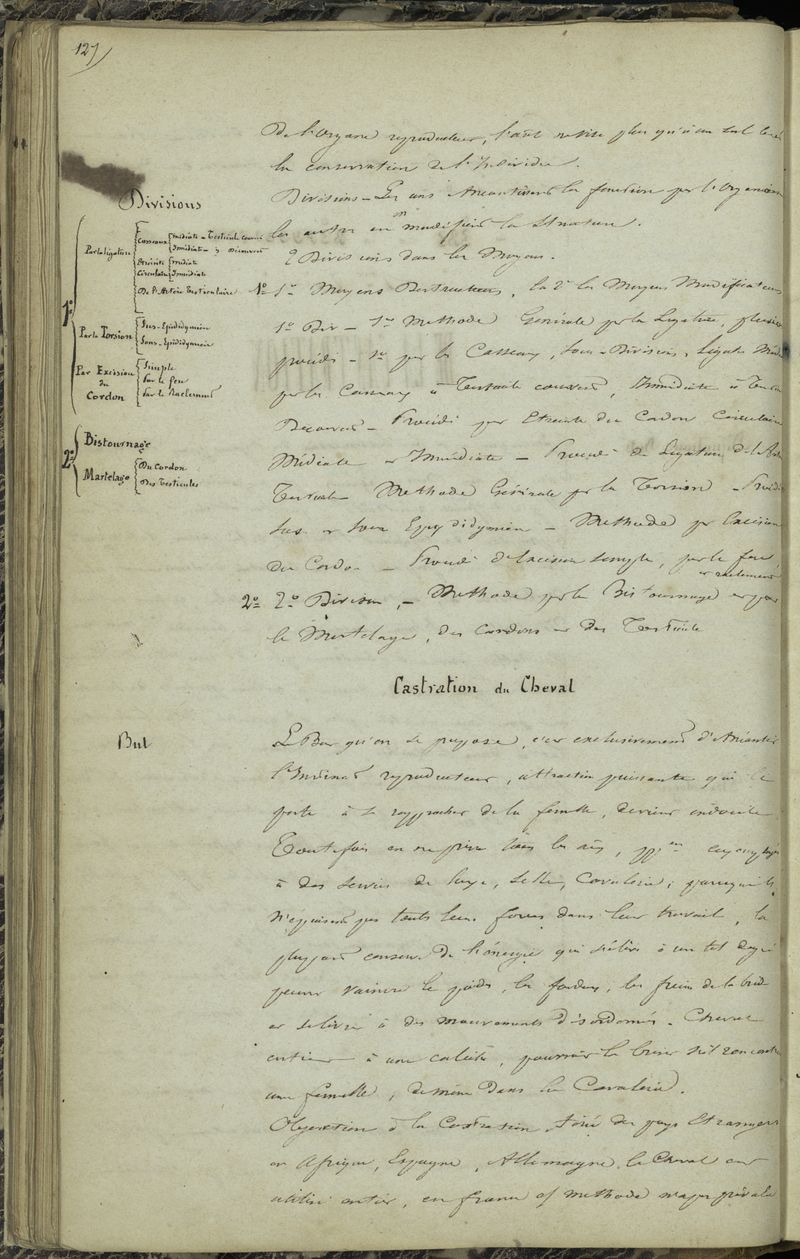 127)
De l'Organe reproducteur, l'autre plus qu'à un seul
la conservation de l'Individu.
Divisions
Divisions _ Les uns Anéantissent les fonctions par l'Organe
les autres en modifient la structure.
2 Divisions dans les Moyens.
1º
Par la ligature
Casseaux
médiate _ Testicule couvert
Immédiate _ " Découvert
Etreinte Circulaire
médiate
Immédiate
De l'Artère Testiculaire
Par la Torsion
Sus-Epididymien
Sous-Epididymien
Par Excission du Cordon
Simple
Par le feu
Par le Raclement
2º
Bistournage
Martelage
Du Cordon
Des Testicules
1º 1º Moyens Destructeurs, la 2e les Moyens Modificateurs
1º Div _ 1re Methode Générale par la Ligature, plusieurs
procédés _ 1º par les Casseaux, Sous-Division, Ligature
par les Casseaux à Testicule couvert, Immédiate à
Découvert _ Procédé par Etreinte du Cordon Circulaire
Médiate et Immédiate _ Procédé de Ligature de l'
Methode Générale par la Torsion _
Sus et Sous Eppydidymien _ Methode par Excision
du Cordon _ Procédé d'excision simple, par le feu,
et raclement
2º 2º Division, _ Methode par le Bistournage et par
le Martelage, des Cordons et des Testicule
Castration du Cheval
But
Le But qu'on se propose, c'est exclusivement d'Anéantir
l'Instinct reproducteur, attraction puissante qui le
porte à se rapprocher de la femelle, devient indocile
Toutefois on ne prive tous les
à des services de luxe, selle, Cavalerie, parcequ'ils
n'épuisent pas toutes leurs forces dans leur travail, la
plupart conserve de l'énergie qui s'élève à un tel degré
peuvent vaincre le poids, les fardeaux, les freins de la bride
et se livre à des mouvements désordonnés. Cheval
entier à une calèche, pourrait la briser s'il rencontre
une femelle, de même dans la Cavalerie.
Objection à la Castration, tiré des pays Etrangers
en Afrique, Espagne, Allemagne, le Cheval est
utilisé entier, en france cette methode n'a pas prévalu